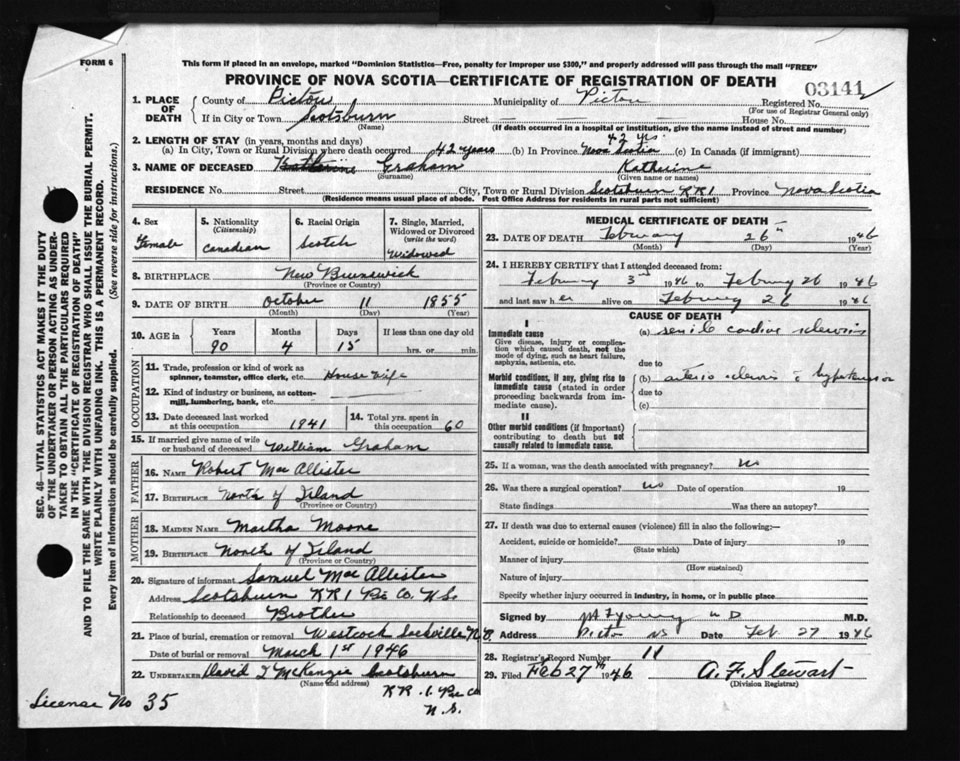 FORM 6
This form if placed in an envelope, marked "Dominion Statistics—Free, penalty for improper use $300," and properly addressed will pass through the mail "FREE"
PROVINCE OF NOVA SCOTIA—CERTIFICATE OF REGISTRATION OF DEATH
03141
1. PLACE OF DEATH County of Pictou Municipality of Pictou Registered No.
(For use of Registrar General only)
If in City or Town Scotsburn Street — — House No. —
(Name) (If death occurred in a hospital or institution, give the name instead of street and number)
2. LENGTH OF STAY (in years, months and days) 42 yrs.
(a) In City, Town or Rural Division where death occurred 42 years (b) In Province Nova Scotia (c) In Canada (if immigrant)
3. NAME OF DECEASED Katharine Graham Katherine
(Surname) (Given name or names)
RESIDENCE No. Street City, Town or Rural Division Scotsburn RR1 Province Nova Scotia
(Residence means usual place of abode. Post Office Address for residents in rural parts not sufficient)
4. Sex Female
5. Nationality (Citizenship) Canadian
6. Racial Origin Scotch
7. Single, Married, Widowed or Divorced (write the word) Widowed
8. BIRTHPLACE New Brunswick
(Province or Country)
9. DATE OF BIRTH October 11 1855
(Month) (Day) (Year)
10. AGE in Years Months Days If less than one day old
90 4 15 hrs. or min.
OCCUPATION
11. Trade, profession or kind of work as spinner, teamster, office clerk, etc. House wife
12. Kind of industry or business, as cotton-mill, lumbering, bank, etc.
13. Date deceased last worked at this occupation 1941
14. Total yrs. spent in this occupation 60
15. If married give name of wife or husband of deceased William Graham
FATHER
16. NAME Robert Mac Allister
17. BIRTHPLACE North of Ireland
(Province or Country)
MOTHER
18. MAIDEN NAME Martha Moore
19. BIRTHPLACE North of Ireland
(Province or Country)
20. Signature of informant Samuel Mac Allister
Address Scotsburn RR1 Pic Co. N.S.
Relationship to deceased Brother
21. Place of burial, cremation or removal Westcock Sackville N.B.
Date of burial or removal March 1st 1946
22. UNDERTAKER David McKenzie Scotsburn
(Name and address)
RR 1 Pic Co
N.S.
License No 35
MEDICAL CERTIFICATE OF DEATH
23. DATE OF DEATH February 26th 1946
(Month) (Day) (Year)
24. I HEREBY CERTIFY that I attended deceased from:
February 3rd 1946 to February 26 1946
and last saw her alive on February 26 1946
CAUSE OF DEATH
I
Immediate cause (a) senile cardiac sclerosis
Give disease, injury or complication which caused death, not the mode of dying, such as heart failure, asphyxia, asthenia, etc.
due to
Morbid conditions, if any, giving rise to immediate cause (stated in order proceeding backwards from immediate cause). (b) arterio sclerosis c hypertension
due to
(c)
II
Other morbid conditions (if important) contributing to death but not causally related to immediate cause.
25. If a woman, was the death associated with pregnancy? No
26. Was there a surgical operation? No Date of operation 19
State findings Was there an autopsy?
27. If death was due to external causes (violence) fill in also the following:—
Accident, suicide or homicide? Date of injury 19
(State which)
Manner of injury
(How sustained)
Nature of injury
Specify whether injury occurred in industry, in home, or in public place
Signed by Young M D M.D.
Address Pictou NS Date Feb. 27 1946
28. Registrar's Record Number 11
29. Filed Feb 27th 1946 A. F. Stewart
(Division Registrar)
SEC. 46—VITAL STATISTICS ACT MAKES IT THE DUTY
OF THE UNDERTAKER OR PERSON ACTING AS UNDER-
TAKER TO OBTAIN ALL THE PARTICULARS REQUIRED
IN THE "CERTIFICATE OF REGISTRATION OF DEATH"
AND TO FILE THE SAME WITH THE DIVISION REGISTRAR WHO SHALL ISSUE THE BURIAL PERMIT.
WRITE PLAINLY WITH UNFADING INK. THIS IS A PERMANENT RECORD.
Every item of information should be carefully supplied. (See reverse side for instructions.)